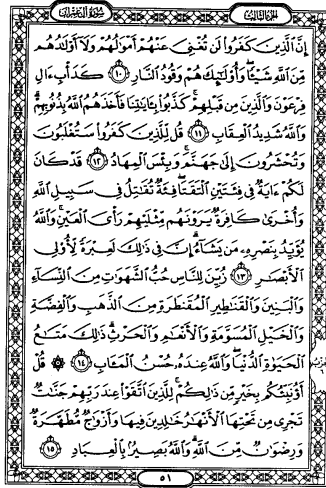 سُورَةُ آلِ عِمْرَانَ الجزء الثالث
إِنَّ ٱلَّذِينَ كَفَرُوا۟ لَن تُغْنِىَ عَنْهُمْ أَمْوَٰلُهُمْ وَلَآ أَوْلَـٰدُهُم
مِّنَ ٱللَّهِ شَيْـًٔا ۖ وَأُو۟لَـٰٓئِكَ هُمْ وَقُودُ ٱلنَّارِ ١٠ كَدَأْبِ ءَالِ
فِرْعَوْنَ وَٱلَّذِينَ مِن قَبْلِهِمْ ۚ كَذَّبُوا۟ بِـَٔايَـٰتِنَا فَأَخَذَهُمُ ٱللَّهُ بِذُنُوبِهِمْ ۗ
وَٱللَّهُ شَدِيدُ ٱلْعِقَابِ ١١ قُل لِّلَّذِينَ كَفَرُوا۟ سَتُغْلَبُونَ
وَتُحْشَرُونَ إِلَىٰ جَهَنَّمَ ۚ وَبِئْسَ ٱلْمِهَادُ ١٢ قَدْ كَانَ
لَكُمْ ءَايَةٌ فِى فِئَتَيْنِ ٱلْتَقَتَا ۖ فِئَةٌ تُقَـٰتِلُ فِى سَبِيلِ ٱللَّهِ
وَأُخْرَىٰ كَافِرَةٌ يَرَوْنَهُم مِّثْلَيْهِمْ رَأْىَ ٱلْعَيْنِ ۚ وَٱللَّهُ
يُؤَيِّدُ بِنَصْرِهِۦ مَن يَشَآءُ ۗ إِنَّ فِى ذَٰلِكَ لَعِبْرَةً لِّأُو۟لِى
ٱلْأَبْصَـٰرِ ١٣ زُيِّنَ لِلنَّاسِ حُبُّ ٱلشَّهَوَٰتِ مِنَ ٱلنِّسَآءِ
وَٱلْبَنِينَ وَٱلْقَنَـٰطِيرِ ٱلْمُقَنطَرَةِ مِنَ ٱلذَّهَبِ وَٱلْفِضَّةِ
وَٱلْخَيْلِ ٱلْمُسَوَّمَةِ وَٱلْأَنْعَـٰمِ وَٱلْحَرْثِ ۗ ذَٰلِكَ مَتَـٰعُ
ٱلْحَيَوٰةِ ٱلدُّنْيَا ۖ وَٱللَّهُ عِندَهُۥ حُسْنُ ٱلْمَـَٔابِ ١٤ ۞ قُلْ
أَؤُنَبِّئُكُم بِخَيْرٍ مِّن ذَٰلِكُمْ ۚ لِلَّذِينَ ٱتَّقَوْا۟ عِندَ رَبِّهِمْ جَنَّـٰتٌ
تَجْرِى مِن تَحْتِهَا ٱلْأَنْهَـٰرُ خَـٰلِدِينَ فِيهَا وَأَزْوَٰجٌ مُّطَهَّرَةٌ
وَرِضْوَٰنٌ مِّنَ ٱللَّهِ ۗ وَٱللَّهُ بَصِيرٌۢ بِٱلْعِبَادِ ١٥
٥١